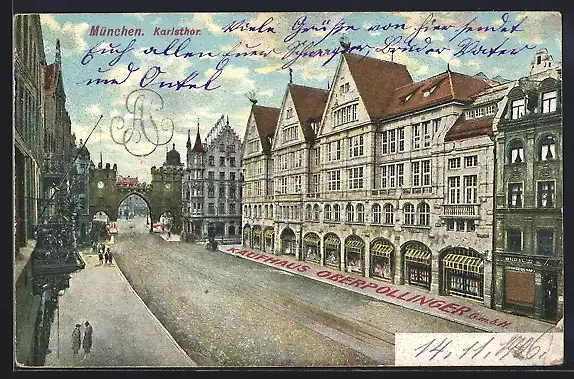 München. Karlsthor.
Viele Grüße von hier sendet
Euch allen Euer Schwager Bruder Vater
und Onkel
KAUFHAUS OBERPOLLINGER G.m.b.H.
14. 11. 1906.